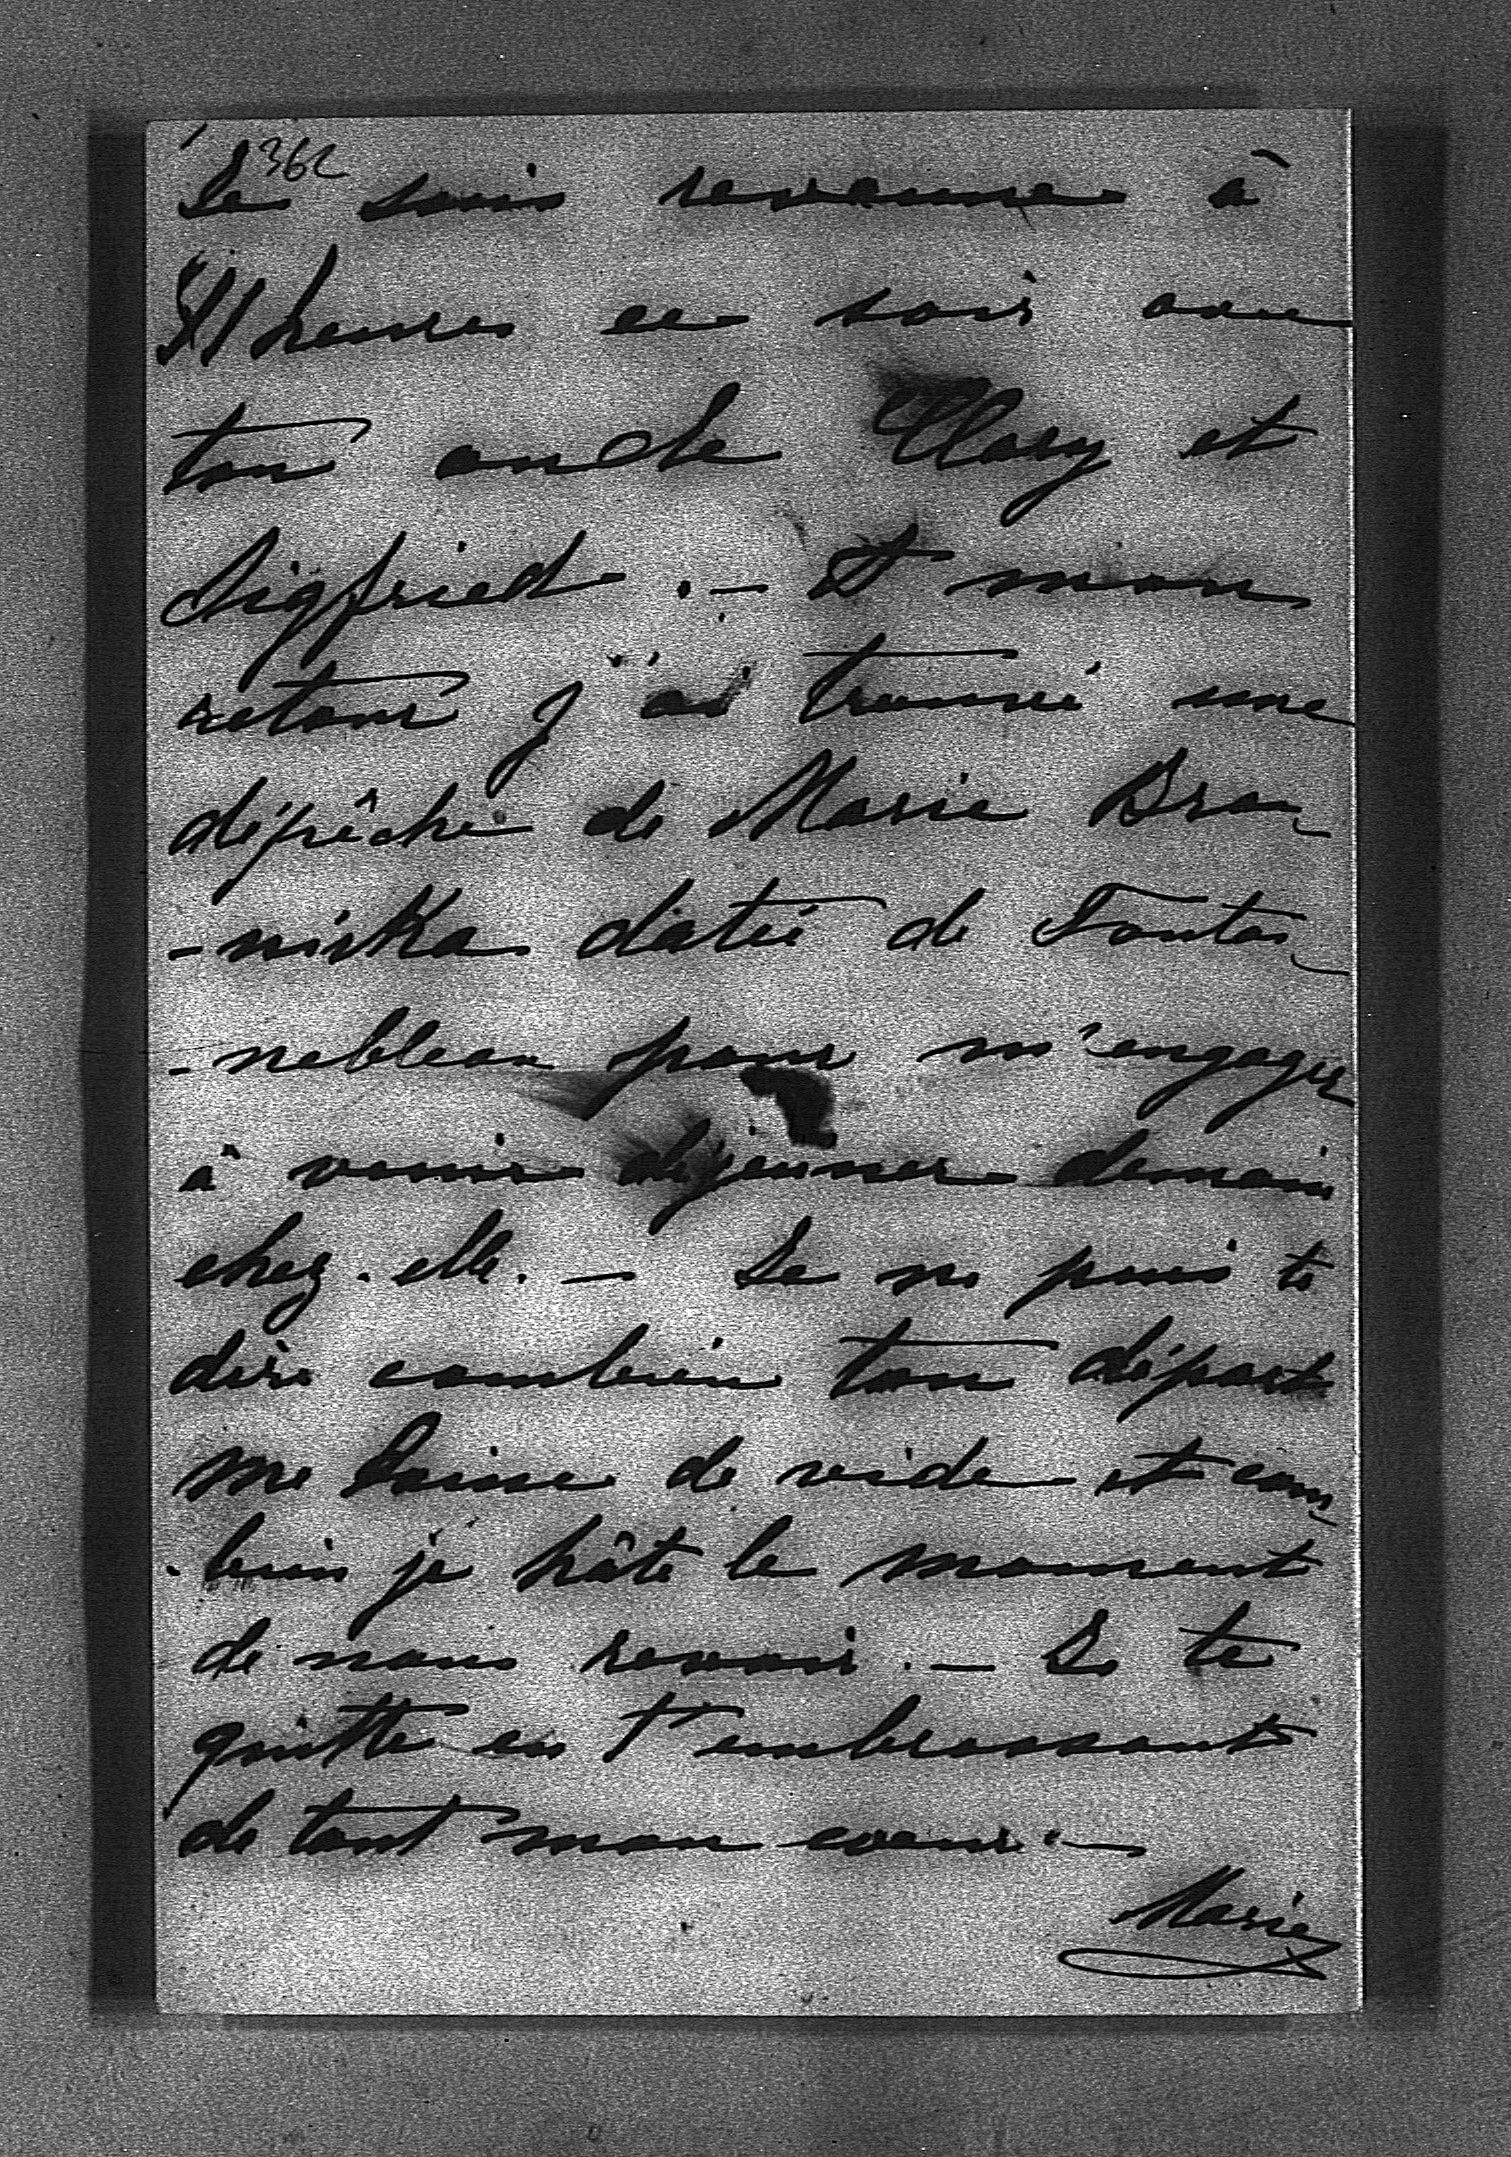 362
Je suis revenue à
11 heures ce soir avec
ton oncle Clary et
Sigfried. — A mon
retour j'ai trouvé une
dépêche de Marie Bra-
-niska datée de Fontai-
-nebleau pour m'engager
à venir déjeuner demain
chez elle. — Je ne puis te
dire combien ton départ
me laisse de vide et com-
-bien je hâte le moment
de nous revoir. — Je te
quitte en t'embrassant
de tout mon coeur. —
Marie